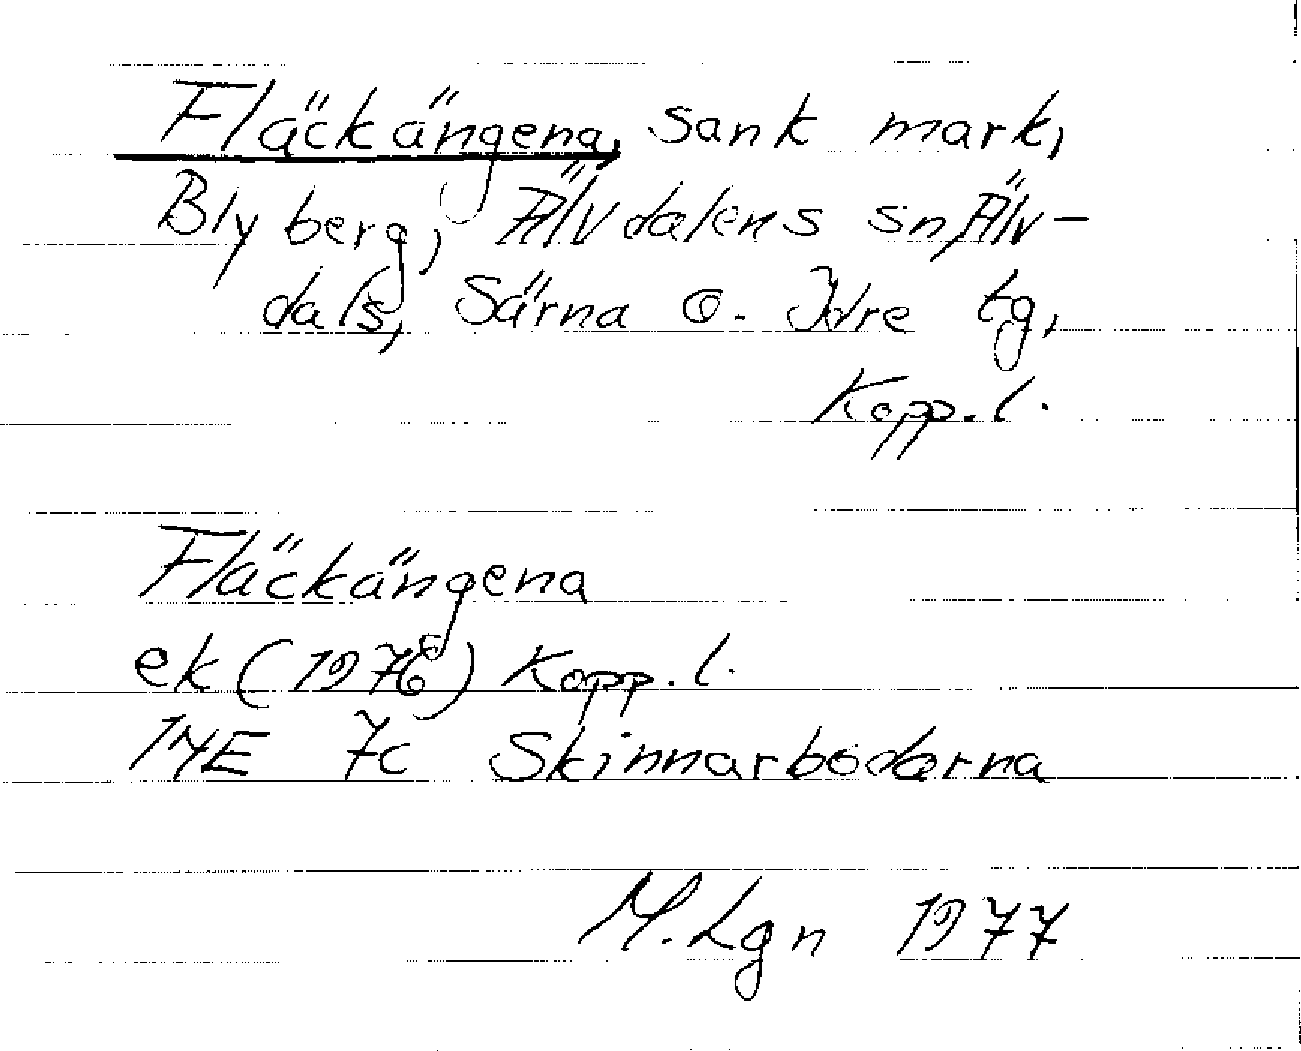 Fläckängena, sank mark,
Blyberg, Älvdalens sn, Älv-
dals, Särna o. Idre tg,
Kopp. l.
Fläckängena
ek (1976) Kopp. l.
14E 7c Skinnarboderna
M. Lgn 1977